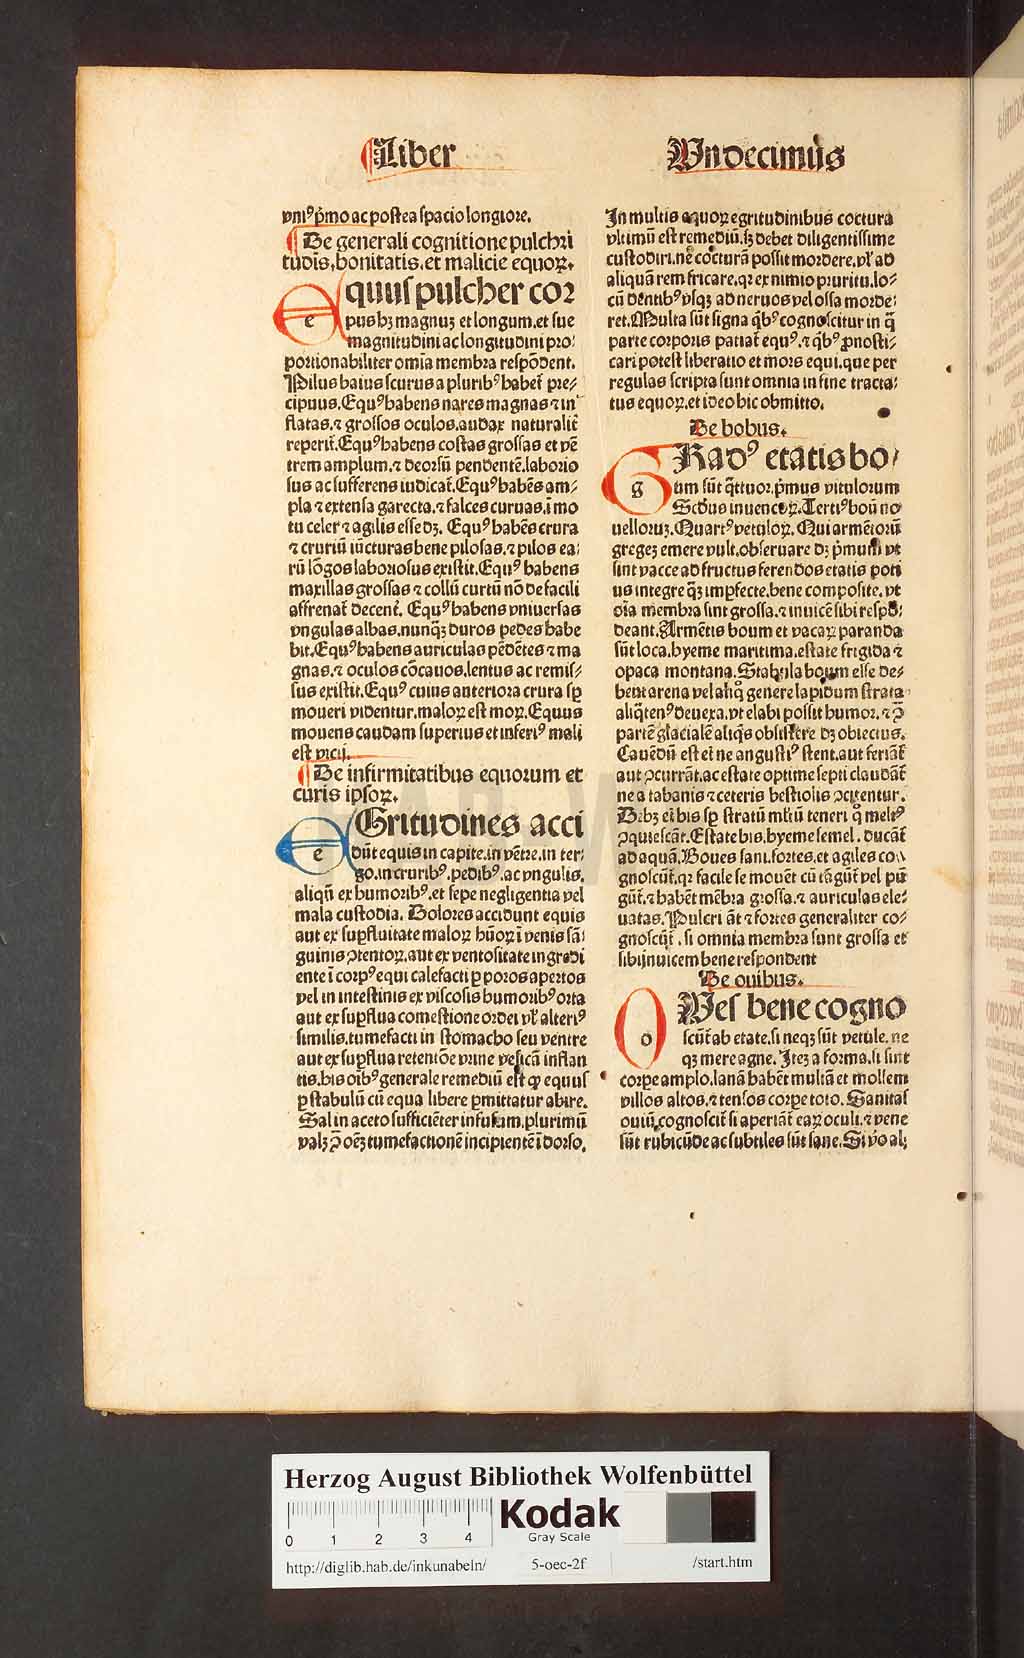 Liber
Undecimus
vniꝰ p̄mo ac postea spacio longiore.
De generali cognitione pulchri
tudis, bonitatis. et malicie equoꝝ.
EQuus pulcher cor
pus hꝫ magnuꝫ et longum. et sue
magnitudini ac longitudini pro⸗
portionabiliter omīa membra respōdent.
Pilus baius scurus a pluribꝰ habet̄ pre⸗
cipuus. Equꝰ habens nares magnas ⁊ in
flatas. ⁊ grossos oculos. audax naturalit̄
reperit̄. Equꝰ habens costas grossas et vē
trem amplum. ⁊ deorsū pendentē. laborio
sus ac sufferens iudicat̄. Equꝰ habēs am⸗
pla ⁊ extensa garecta. ⁊ falces curuas. ī mo
tu celer ⁊ agilis esse dꝫ. Equꝰ habēs crura
⁊ cruriū iūcturas bene pilosas. ⁊ pilos ea⸗
rū lōgos laboriosus existit. Equꝰ habens
maxillas grossas ⁊ collū curtū nō de facili
affrenat̄ decent̄. Equꝰ habens vniuersas
vngulas albas. nunqꝫ duros pedes habe
bit. Equꝰ habens auriculas pēdētes ⁊ ma
gnas. ⁊ oculos cōcauos. lentus ac remis⸗
sus existit. Equꝰ cuius anteriora crura sꝑ
moueri videntur. maloꝝ est moꝝ. Equus
mouens caudam superius et inferiꝰ mali
est vicij.
De infirmitatibus equorum et
curis ipsoꝝ.
EGritudines acci
dūt equis in capite. in vētre. in ter⸗
go. in cruribꝰ. pedibꝰ. ac vngulis.
aliqn̄ ex humoribꝰ. et sepe negligentia vel
mala custodia. Dolores accidunt equis
aut ex suꝑfluitate maloꝝ hūoꝝ ī venis sā⸗
guinis ꝯtentoꝝ. aut ex ventositate ingredi
ente ī corpꝰ equi calefacti ꝑ poros apertos
vel in intestinis ex viscosis humoribꝰ orta
aut ex suꝑflua comestione ordei vl̄ alteriꝰ
similis. tumefacti in stomacho seu ventre
aut ex suꝑflua retentiōe vrine vesicā inflan
tis. his oībꝰ generale remediū est ꝙ equus
ꝑ stabulū cū equa libere ꝑmittatur abire.
Sal in aceto sufficiēter infusum. plurimū
valꝫ ꝓ oēꝫ tumefactionē incipientē ī dorso.
In multis aquoꝝ egritudinibus coctura
vltimū est remediū. sꝫ debet diligentissime
custodiri. ne cocturā possit mordere. vl̄ ad
aliquā rem fricare. qꝛ ex nimio pruritu. lo⸗
cū dentibꝰ vsqꝫ ad neruos vel ossa morde⸗
ret. Multa sūt signa qͥbꝰ cognoscitur in q̄
parte corporis patiat̄ equꝰ. ⁊ qͥbꝰ ꝓnosti⸗
cari potest liberatio et mors equi. que per
regulas scripta sunt omnia in fine tracta⸗
tus equoꝝ. et ideo hic obmitto.
De bobus.
GRadꝰ etatis bo⸗
um sūt q̄ttuor. p̄mus vitulorum
Scd̄us inuencoꝝ. Tertiꝰ boū no
uelloruꝫ. Quartꝰ vetuloꝝ. Qui armētorū
gregeꝫ emere vult. obseruare dꝫ p̄mum vt
sint vacce ad fructus ferendos etatis poti
us integre qꝫ imꝑfecte. bene composite. vt
oīa membra sint grossa. ⁊ inuicē sibi respō⸗
deant. Armētis boum et vacaꝝ paranda
sūt loca. hyeme maritima. estate frigida ⁊
opaca montana. Stabula boum esse de⸗
bent arena vel aliqͦ genere lapidum strata
aliq̄tenꝰ deuexa. vt elabi possit humor. ⁊ ꝓ
partē glacialē aliqͥs obsistere dꝫ obiectus.
Cauēdū est ei ne angustiꝰ stent. aut feriāt̄
aut ꝯcurrāt. ac estate optime septi claudāt̄
ne a tabanis ⁊ ceteris bestiolis ꝯcitentur.
Dꝫ et his sꝑ stratū mltū teneri qͦ meliꝰ
ꝯquiescāt. Estate bis. hyeme semel. ducāt̄
ad aquā. Boues sani. fortes. et agiles co⸗
gnoscūt̄. qꝛ facile se mouēt cū tāgūt̄ vel pū
gūt̄. ⁊ habēt mēbra grossa. ⁊ auriculas ele⸗
uatas. Pulcri āt ⁊ fortes generaliter co⸗
gnoscūt̄. si omnia membra sunt grossa et
sibijnuicem bene respondent
De ouibus.
OVes bene cogno
scūt̄ ab etate. si neqꝫ sūt vetule. ne
qꝫ mere agne. Iteꝫ a forma. si sint
corpe amplo. lanā habēt multā et mollem
villos altos. ⁊ tensos corpe toto. Sanitas
ouiū cognoscit̄ si aperiāt̄ eaꝝ oculi. ⁊ vene
sūt rubicūde ac subtiles sūt sane. Si v̄o al⸗
Herzog August Bibliothek Wolfenbüttel
0 1 2 3 4
Kodak
Gray Scale
http://diglib.hab.de/inkunabeln/ 5-oec-2f /start.htm